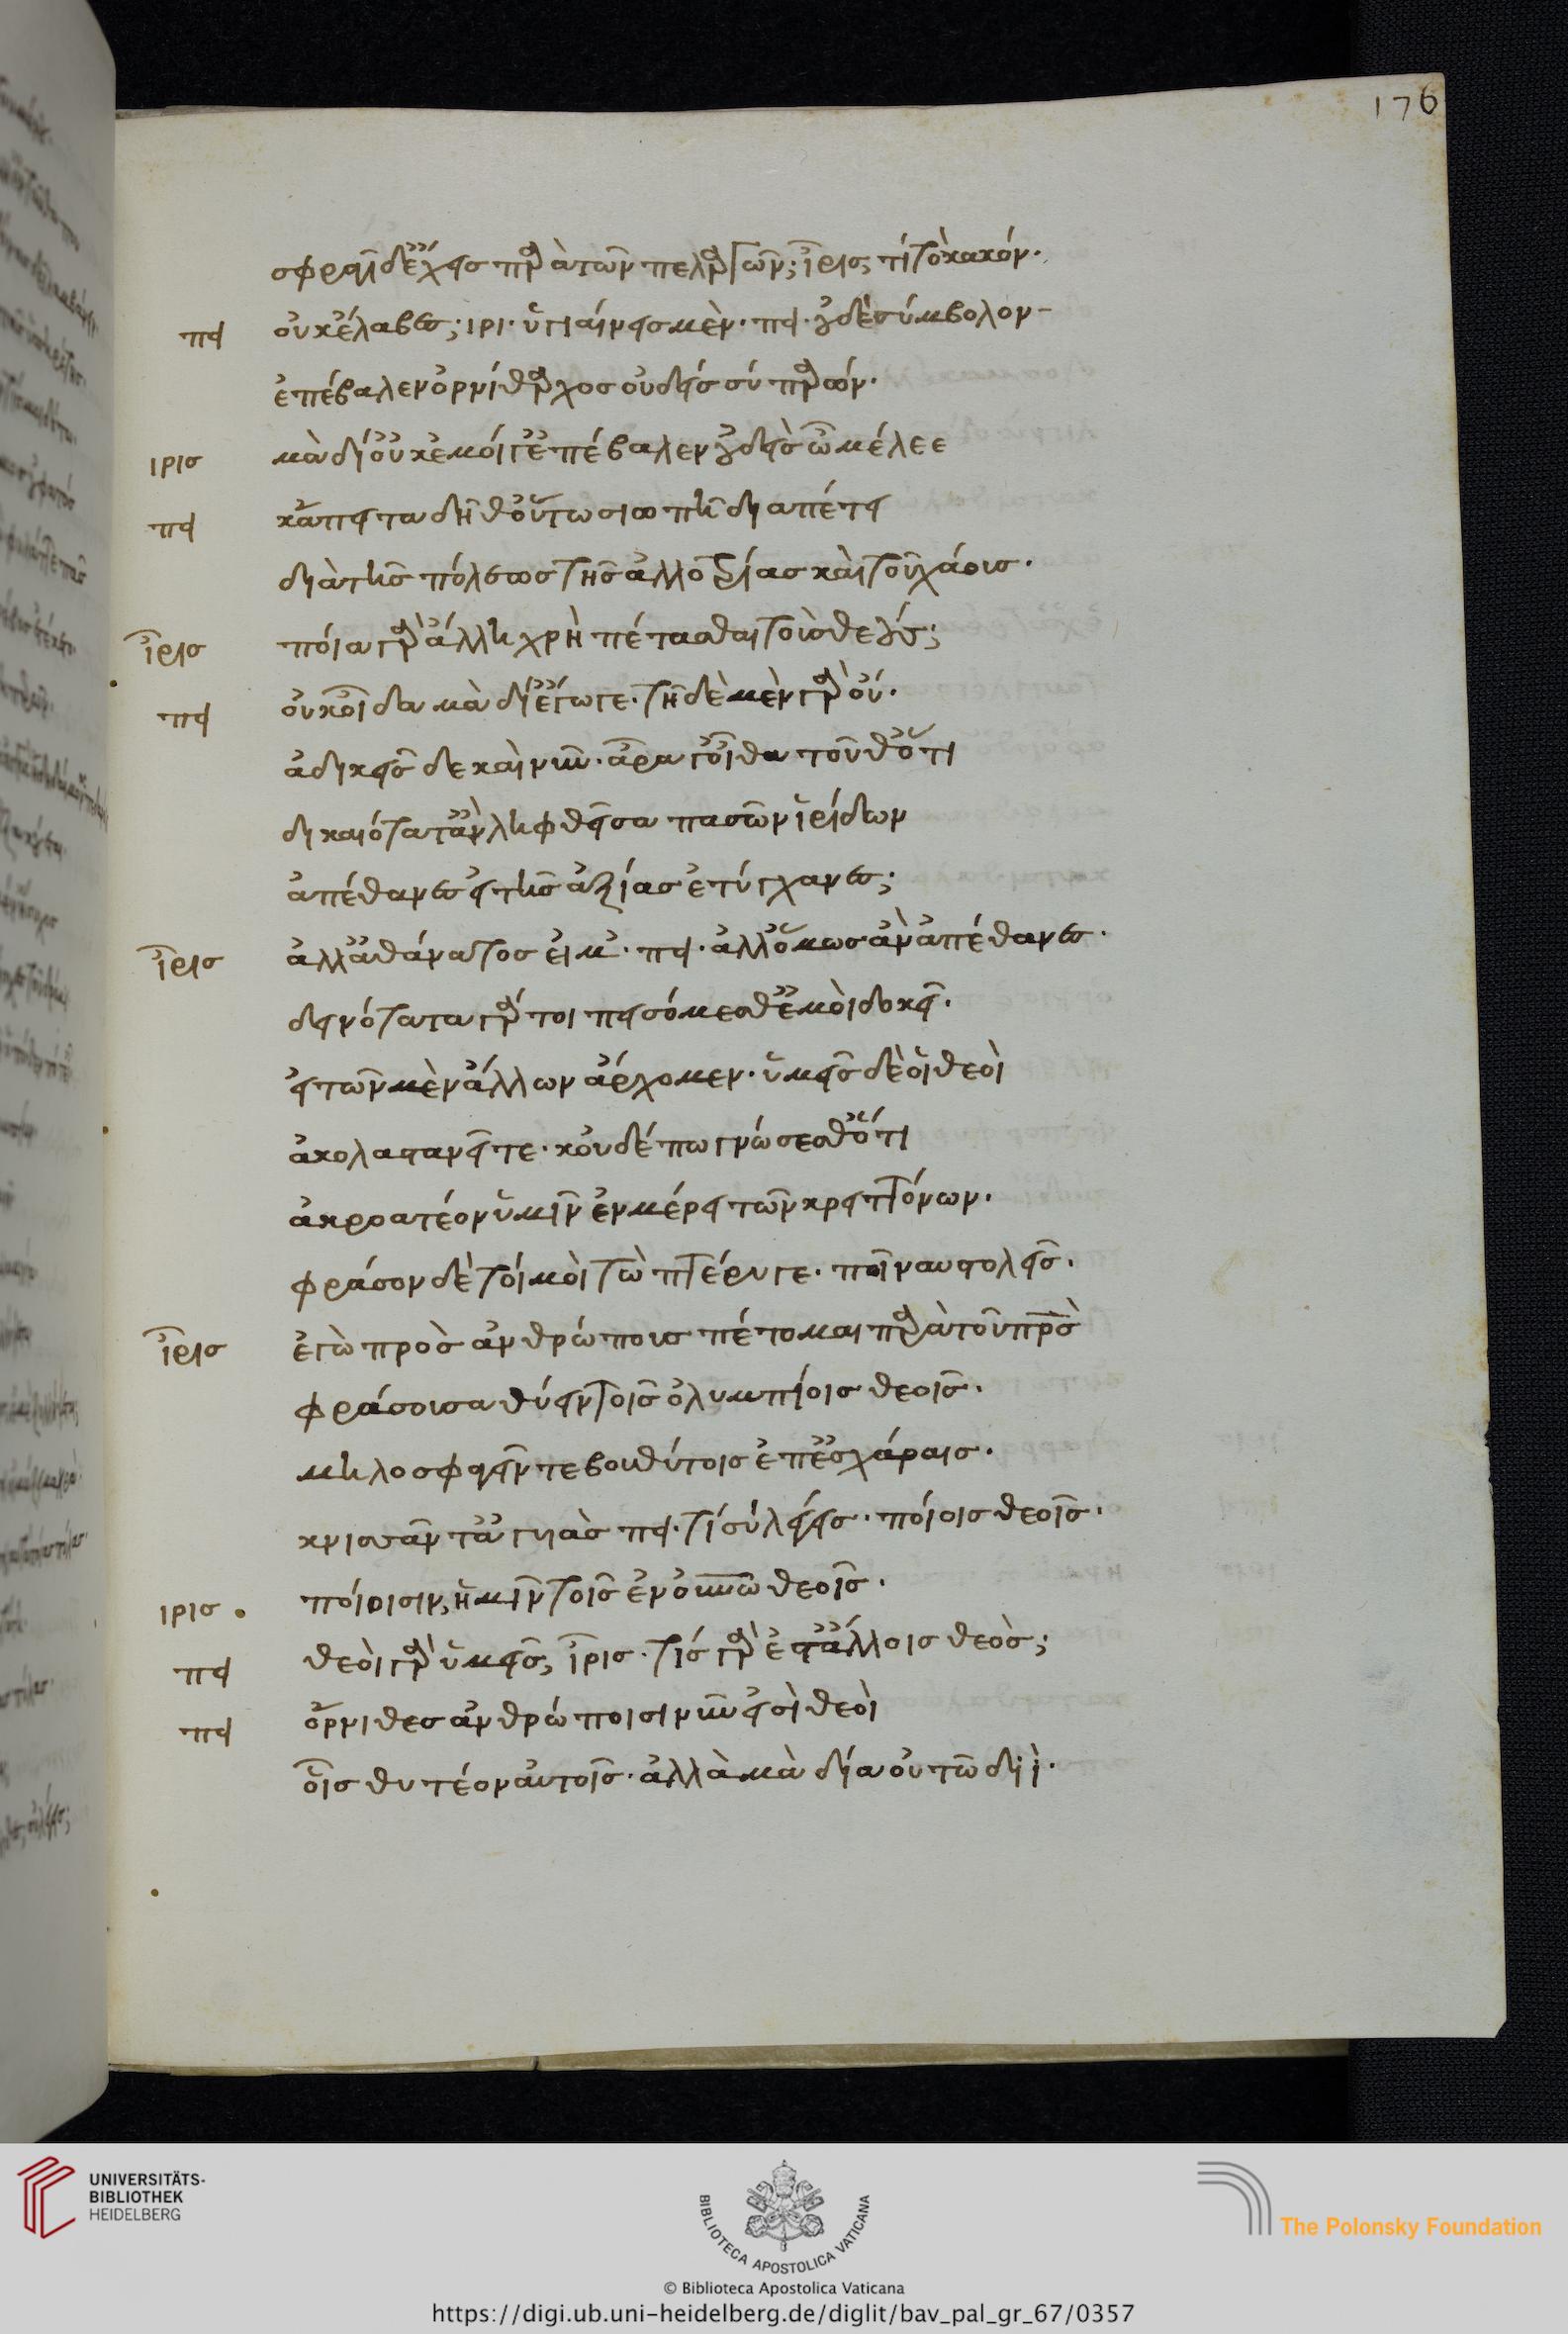 176
σφραγῖδ᾽ ἔχεις παρὰ τῶν πελαργῶν; ἶρις τί τὸ κακόν.
πει οὐκ ἔλαβες; ιρι. ὑγιαίνεις μὲν. πει. οὐδὲ σύμβολον
ἐπέβαλεν ὀρνίθαρχος οὐδείς σύ παρών.
ιρις μὰ δί᾽ οὐκ ἐμοί γ᾽ ἐπέβαλεν οὐδεὶς ὦ μέλεε
πει κἄπειτα δῆθ᾽ οὕτω σιωπῆ διαπέτει
διὰ τῆς πόλεως τῆς ἀλλοτρίας καὶ τοῦ χάους.
ἶρις ποία γὰρ ἄλλη χρὴ πέτασθαι τοὺς θεούς;
πει οὐκ οἶδα μὰ δί᾽ ἔγωγε. τῆδε μὲν γὰρ οὔ.
ἀδικεῖς δε καὶ νῦν. ἆρα γ᾽ οἶσθα τοῦθ᾽ ὅτι
δικαιότατ᾽ ἂν ληφθεῖσα πασῶν ἰρίδων
ἀπέθανες εἰ τῆς ἀξίας ἐτύγχανες;
ἶρις ἀλλ᾽ ἀθάνατος εἰμ᾽. πει. ἀλλ᾽ ὅμως ἂν ἀπέθανες.
δεινότατα γάρ τοι πεισόμεσθ᾽ ἐμοὶ δοκεῖ.
εἰ τῶν μὲν ἄλλων ἄρχομεν. ὑμεῖς δὲ οἱ θεοὶ
ἀκολασταινεῖτε. κοὐδέπω γνώσεσθ᾽ ὅτι
ἀκροατέον ὑμῖν ἐν μέρει τῶν κρειττόνων.
φράσον δὲ τοί μοὶ τὼ πτέρυγε. ποῖ ναυστολεῖς.
ἶρις ἐγὼ προὸς ἀνθρώπους πέτομαι παρὰ τοῦ πρς
φράσουσα θύειν τοῖς ὀλυμπίοις θεοῖς.
μηλοσφαγεῖν τε βουθύτοις ἐπ᾽ ἐσχάραις.
κνισᾶν τ᾽ ἀγυιὰς πει. τί σύ λέγεις. ποίοις θεοῖς.
ιρις ποίοισιν, ἡμῖν τοῖς ἐν οὐνῶ θεοῖς.
πει θεοὶ γὰρ ὑμεῖς; ἶρις. τίς γὰρ ἐστ᾽ ἄλλοις θεὸς;
πει ὄρνιθες ἀνθρώποισι νῦν εἰσὶ θεοὶ
οἷς θυτέον αὐτοῖς. ἀλλὰ μὰ δία οὐ τῶ διΐ.
UNIVERSITÄTS-
BIBLIOTHEK
HEIDELBERG
BIBLIOTECA APOSTOLICA VATICANA
The Polonsky Foundation
© Biblioteca Apostolica Vaticana
https://digi.ub.uni-heidelberg.de/diglit/bav_pal_gr_67/0357